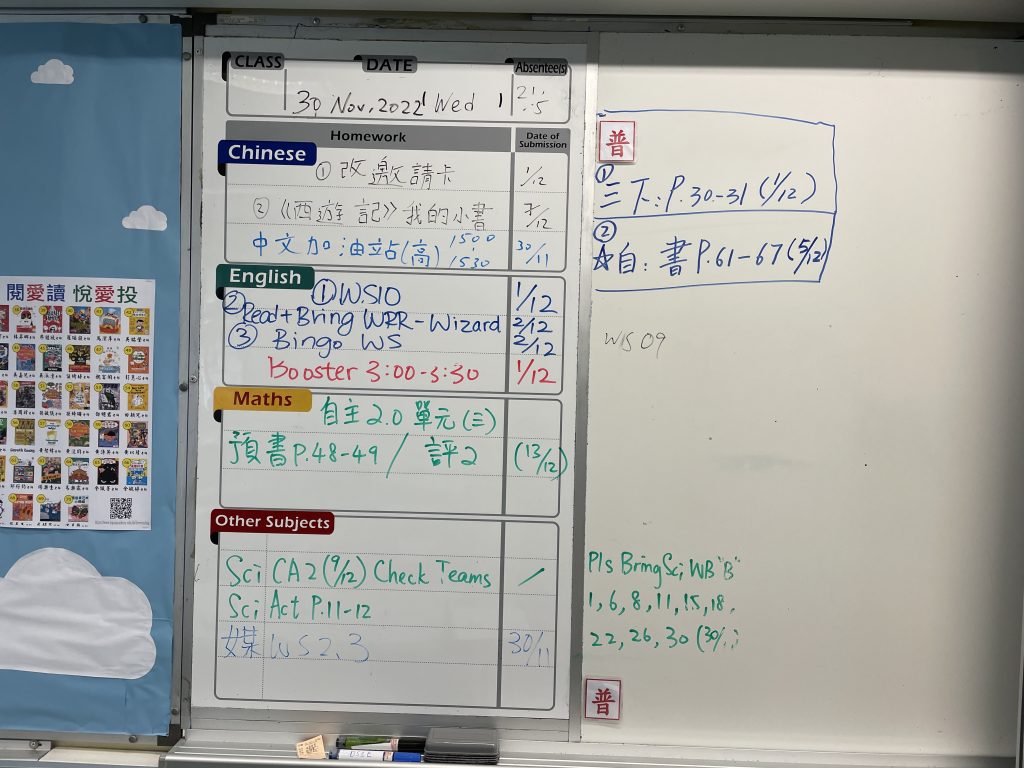 閱愛讀 悅愛投
CLASS
DATE
Absentee(s)
30 Nov, 2022 Wed
Homework
Date of Submission
Chinese
① 改邀請卡 1/12
② 《西遊記》我的小書
中文加油站(高) 1500 1530 30/11
English
① WS10 1/12
② Read + Bring WPR-Wizard 2/12
③ Bingo WS 2/12
Booster 3:00-3:30 1/12
Maths
自主2.0 單元(三)
預書P.48-49 / 評2 (13/12)
Other Subjects
Sci CA2 (9/12) Check Teams
Sci Act P.11-12
媒 WS 2、3 30/11
普
① 三下: P.30-31 (1/12)
② ☆自: 書 P.61-67 (5/12)
WS 09
Pls Bring Sci WB "B"
1, 6, 8, 11, 15, 18,
22, 26, 30
普